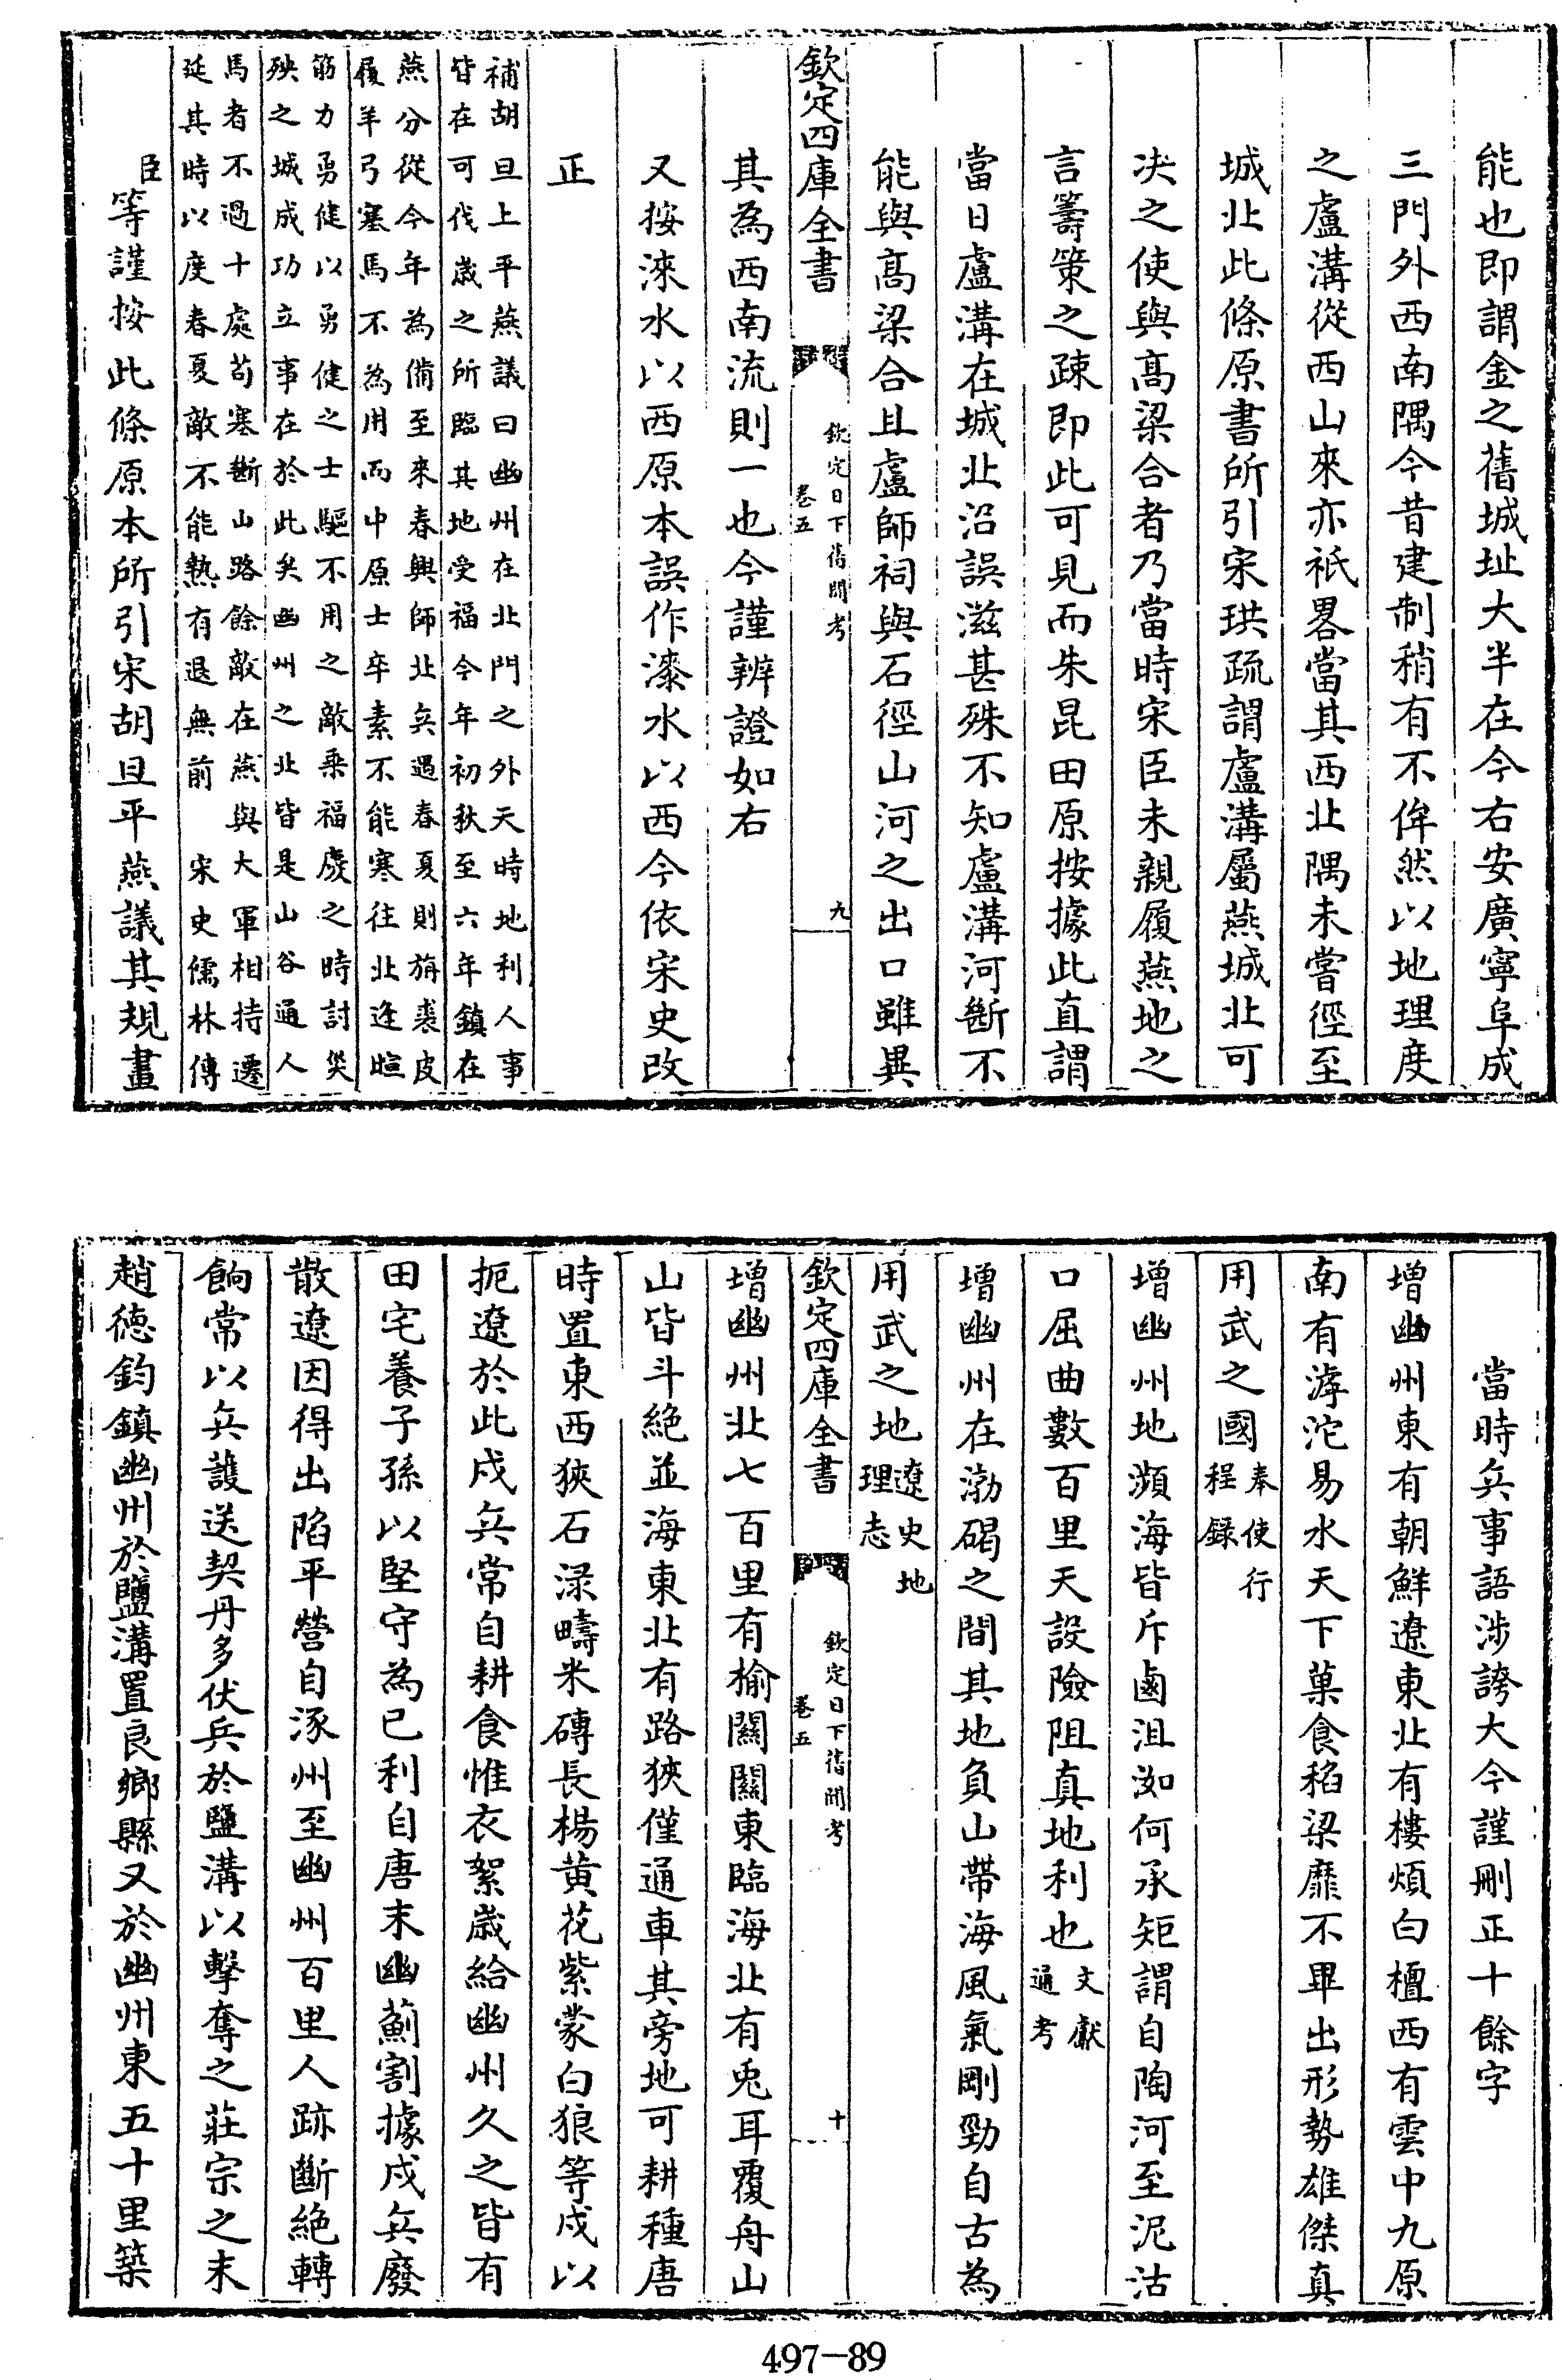 能也即謂金之舊城址大半在今右安廣寧阜成
三門外西南隅今昔建制稍有不侔然以地理度
之盧溝從西山來亦袛畧當其西北隅未嘗徑至
城北此條原書所引宋琪疏謂盧溝屬燕城北可
决之使與髙梁合者乃當時宋臣未親履燕地之
言籌策之疎即此可見而朱昆田原按據此直謂
當日盧溝在城北沿誤滋甚殊不知盧溝河斷不
能與髙梁合且盧師祠與石徑山河之出口雖異
欽定四庫全書
欽定日下舊聞考
卷五
九
其為西南流則一也今謹辨證如右
又按淶水以西原本誤作漆水以西今依宋史改
正
補胡旦上平燕議曰幽州在北門之外天時地利人事
皆在可伐嵗之所臨其地受福今年初秋至六年鎮在
燕分從今年為備至來春興師北兵遇春夏則旃裘皮
履羊弓塞馬不為用而中原士卒素不能寒往北逢暄
筋力勇健以勇健之士驅不用之敵乗福慶之時討災
殃之城成功立事在於此矣幽州之北皆是山谷通人
馬者不過十處茍塞斷山路餘敵在燕與大軍相持遷
延其時以度春夏敵不能熱有退無前 宋史儒林傳
臣等謹按此條原本所引宋胡旦平燕議其規畫
當時兵事語涉誇大今謹刪正十餘字
増幽州東有朝鮮遼東北有樓煩白檀西有雲中九原
南有滹沱易水天下菓食稻梁靡不畢出形勢雄傑真
用武之國奉使行程録
増幽州地瀕海皆斥鹵沮洳何承矩謂自陶河至泥沽
口屈曲數百里天設險阻真地利也文獻通考
増幽州在渤碣之間其地負山帶海風氣剛勁自古為
用武之地遼史地理志
欽定四庫全書
欽定日下舊聞考
卷五
十
増幽州北七百里有榆關關東臨海北有兎耳覆舟山
山皆斗絶並海東北有路狹僅通車其旁地可耕種唐
時置東西狹石渌疇米磚長楊黄花紫蒙白狼等戍以
扼遼於此戍兵常自耕食惟衣絮嵗給幽州久之皆有
田宅養子孫以堅守為已利自唐末幽薊割據戍兵廢
散遼因得出陷平營自涿州至幽州百里人跡斷絶轉
餉常以兵䕶送契丹多伏兵於鹽溝以擊奪之莊宗之末
趙德鈞鎮幽州於鹽溝置良鄉縣又於幽州東五十里築
497—89